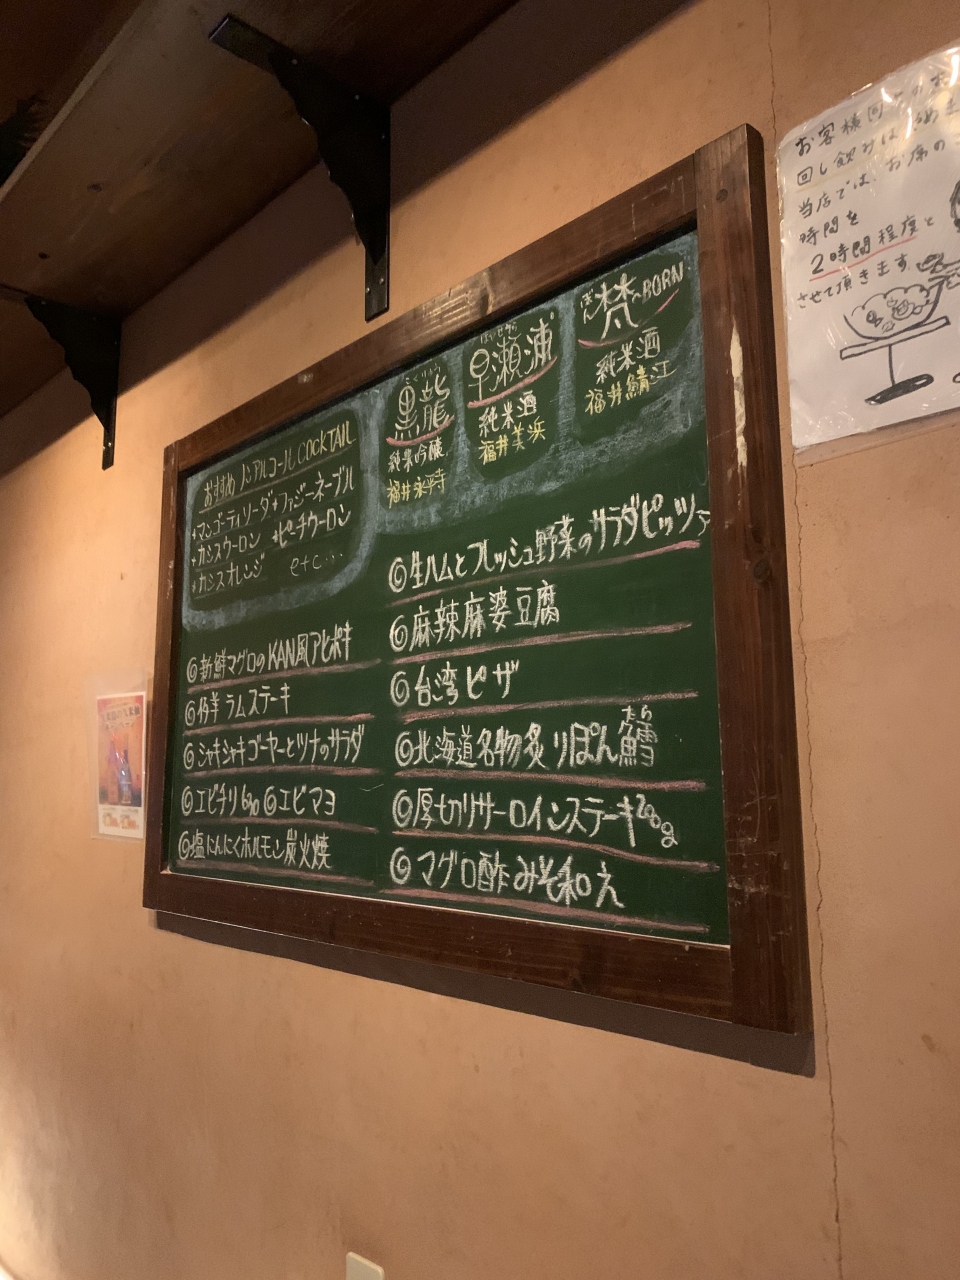 おすすめ ノンアルコールCOCKTAIL
+マンゴーティソーダ +ファジーネーブル
+カシスウーロン +ピーチウーロン
+カシスオレンジ etc...
こくりゅう
黒龍
純米吟醸
福井永平寺
はやせうら
早瀬浦
純米酒
福井美浜
ぼん
梵~BORN
純米酒
福井鯖江
新鮮マグロのKAN風アヒポキ
仔羊 ラムステーキ
シャキシャキゴーヤーとツナのサラダ
エビチリ エビマヨ
塩にんにくホルモン炭火焼
生ハムとフレッシュ野菜のサラダピッツァ
麻辣麻婆豆腐
台湾ピザ
北海道名物炙りぽん鱈
たら
厚切りサーロインステーキ200g
マグロ酢みそ和え
お客様回
回し飲みは
当店では、お席の
時間を
2時間程度と
させて頂きます